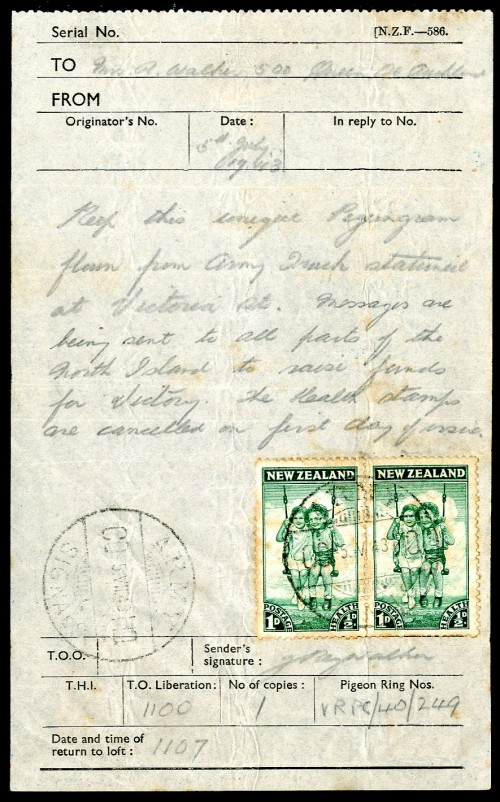 Serial No. [N.Z.F.—586.
TO Mr. R. Walker 500 Queen St Auckland
FROM
Originator's No. Date : In reply to No.
5th July
1943
Keep this unique Pigeongram
flown from Army Truck stationed
at Victoria St. Messages are
being sent to all parts of the
North Island to raise funds
for Victory. The Health stamps
are cancelled on first day of issue.
NEW ZEALAND NEW ZEALAND
POSTAGE 1D HEALTH ½D POSTAGE 1D HEALTH ½D
ARMY SIGNALS
T.O.O. Sender's
signature : Walker
T.H.I. T.O. Liberation: No of copies : Pigeon Ring Nos.
1100 1 VRPC/40/249
Date and time of
return to loft : 1107